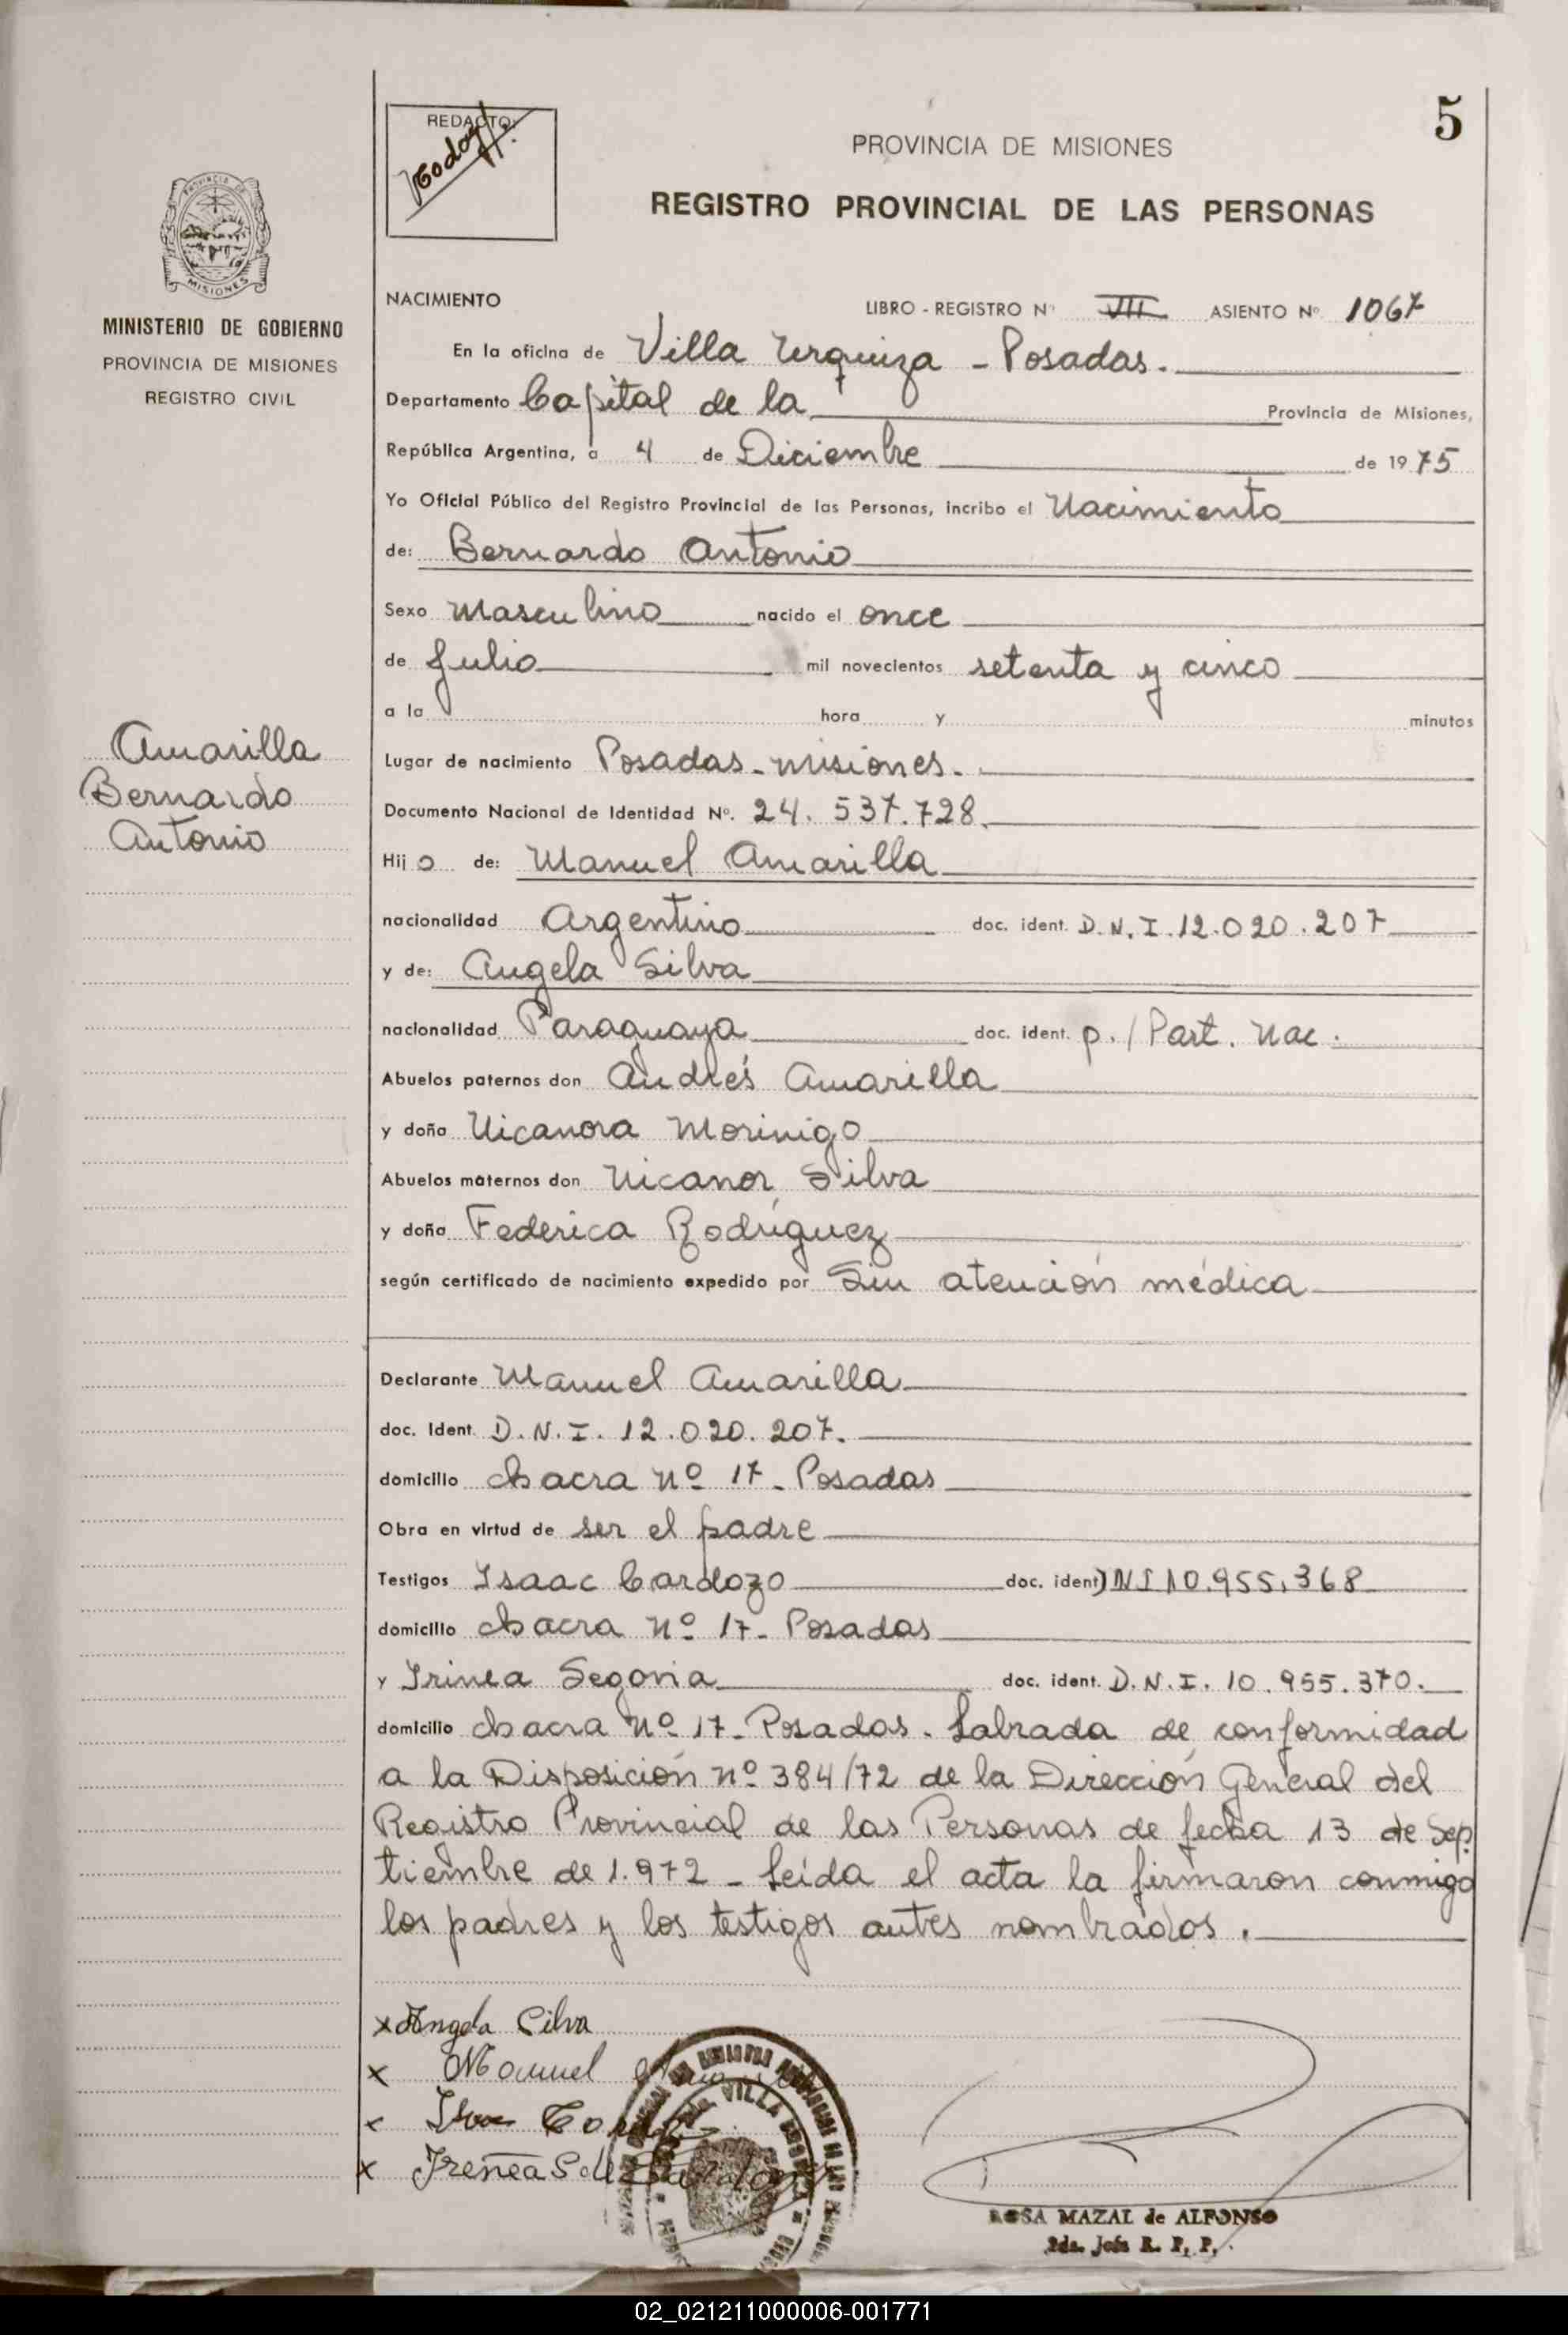 5
REDACTO:
Godoy
PROVINCIA DE MISIONES
REGISTRO PROVINCIAL DE LAS PERSONAS
MISIONES
MINISTERIO DE GOBIERNO
PROVINCIA DE MISIONES
REGISTRO CIVIL
NACIMIENTO LIBRO - REGISTRO Nº VII ASIENTO Nº 1067
En la oficina de Villa Urquiza - Posadas.
Departamento Capital de la Provincia de Misiones,
República Argentina, a 4 de Diciembre de 1975
Yo Oficial Público del Registro Provincial de las Personas, incribo el Nacimiento
de: Bernardo Antonio
Sexo Masculino nacido el once
de Julio mil novecientos setenta y cinco
a la hora y minutos
Amarilla
Bernardo
Antonio
Lugar de nacimiento Posadas - Misiones.
Documento Nacional de Identidad Nº. 24.537.728.
Hijo de: Manuel Amarilla
nacionalidad Argentino doc. ident. D.N.I. 12.020.207
y de: Angela Silva
nacionalidad Paraguaya doc. ident. p./Part. Nac.
Abuelos paternos don Andrés Amarilla
y doña Nicanora Morinigo
Abuelos maternos don Nicanor Silva
y doña Federica Rodríguez
según certificado de nacimiento expedido por Sin atención médica
Declarante Manuel Amarilla
doc. Ident. D.N.I. 12.020.207.
domicilio chacra nº 17 - Posadas
Obra en virtud de ser el padre
Testigos Isaac Cardozo doc. ident DNI 10.955.368
domicilio chacra nº 17 - Posadas
y Irinea Segovia doc. ident. D.N.I. 10.955.370.
domicilio chacra nº 17 - Posadas. Labrada de conformidad
a la Disposición nº 384/72 de la Dirección General del
Registro Provincial de las Personas de fecha 13 de Sep
tiembre de 1.972 - Leída el acta la firmaron conmigo
los padres y los testigos antes nombrados.
x Angela Silva
x Manuel
x Cardozo
x Ireñea S de Cardozo
VILLA URQUIZA
ROSA MAZAL de ALFONSO
2da. Jefa R. P. P.
02_021211000006-001771